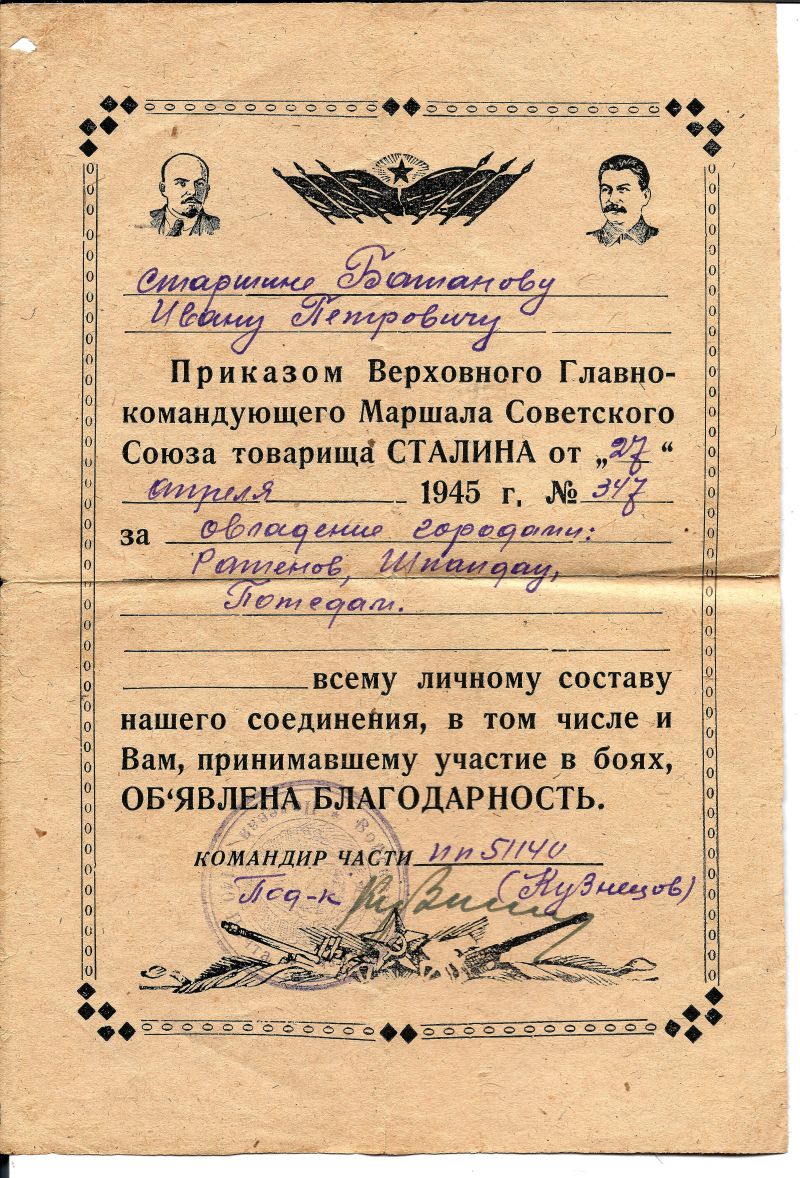 старшине Батанову
Ивану Петровичу
Приказом Верховного Главно-
командующего Маршала Советского
Союза товарища СТАЛИНА от „27“
апреля 1945 г. № 347
за овладение городами:
Ратенов, Шпандау,
Потсдам.
всему личному составу
нашего соединения, в том числе и
Вам, принимавшему участие в боях,
ОБ‘ЯВЛЕНА БЛАГОДАРНОСТЬ.
КОМАНДИР ЧАСТИ пп 51140
Под-к (Кузнецов)